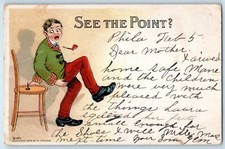 SEE THE POINT?
Phila Feb 5
Dear Mother, I arived
home safe Mame
and the Children
were very much
pleased with
the things Laura
enough for
the Shoes I will
next time you Son